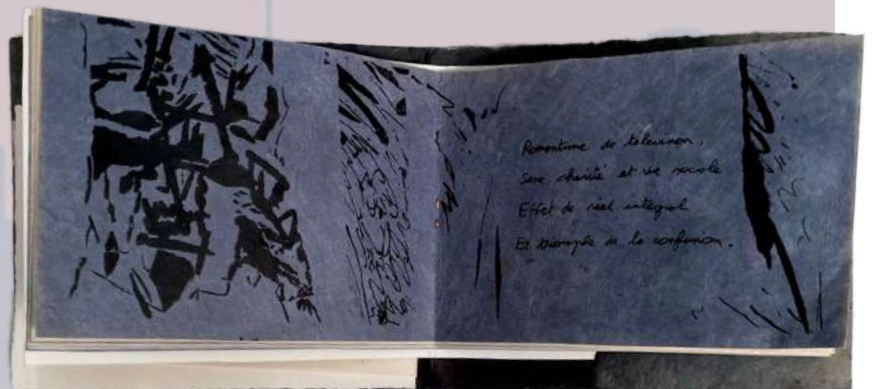 Romantisme de télévision,
Sexe charité et vie sociale
Effet de réel intégral
Et triomphe de la confusion.